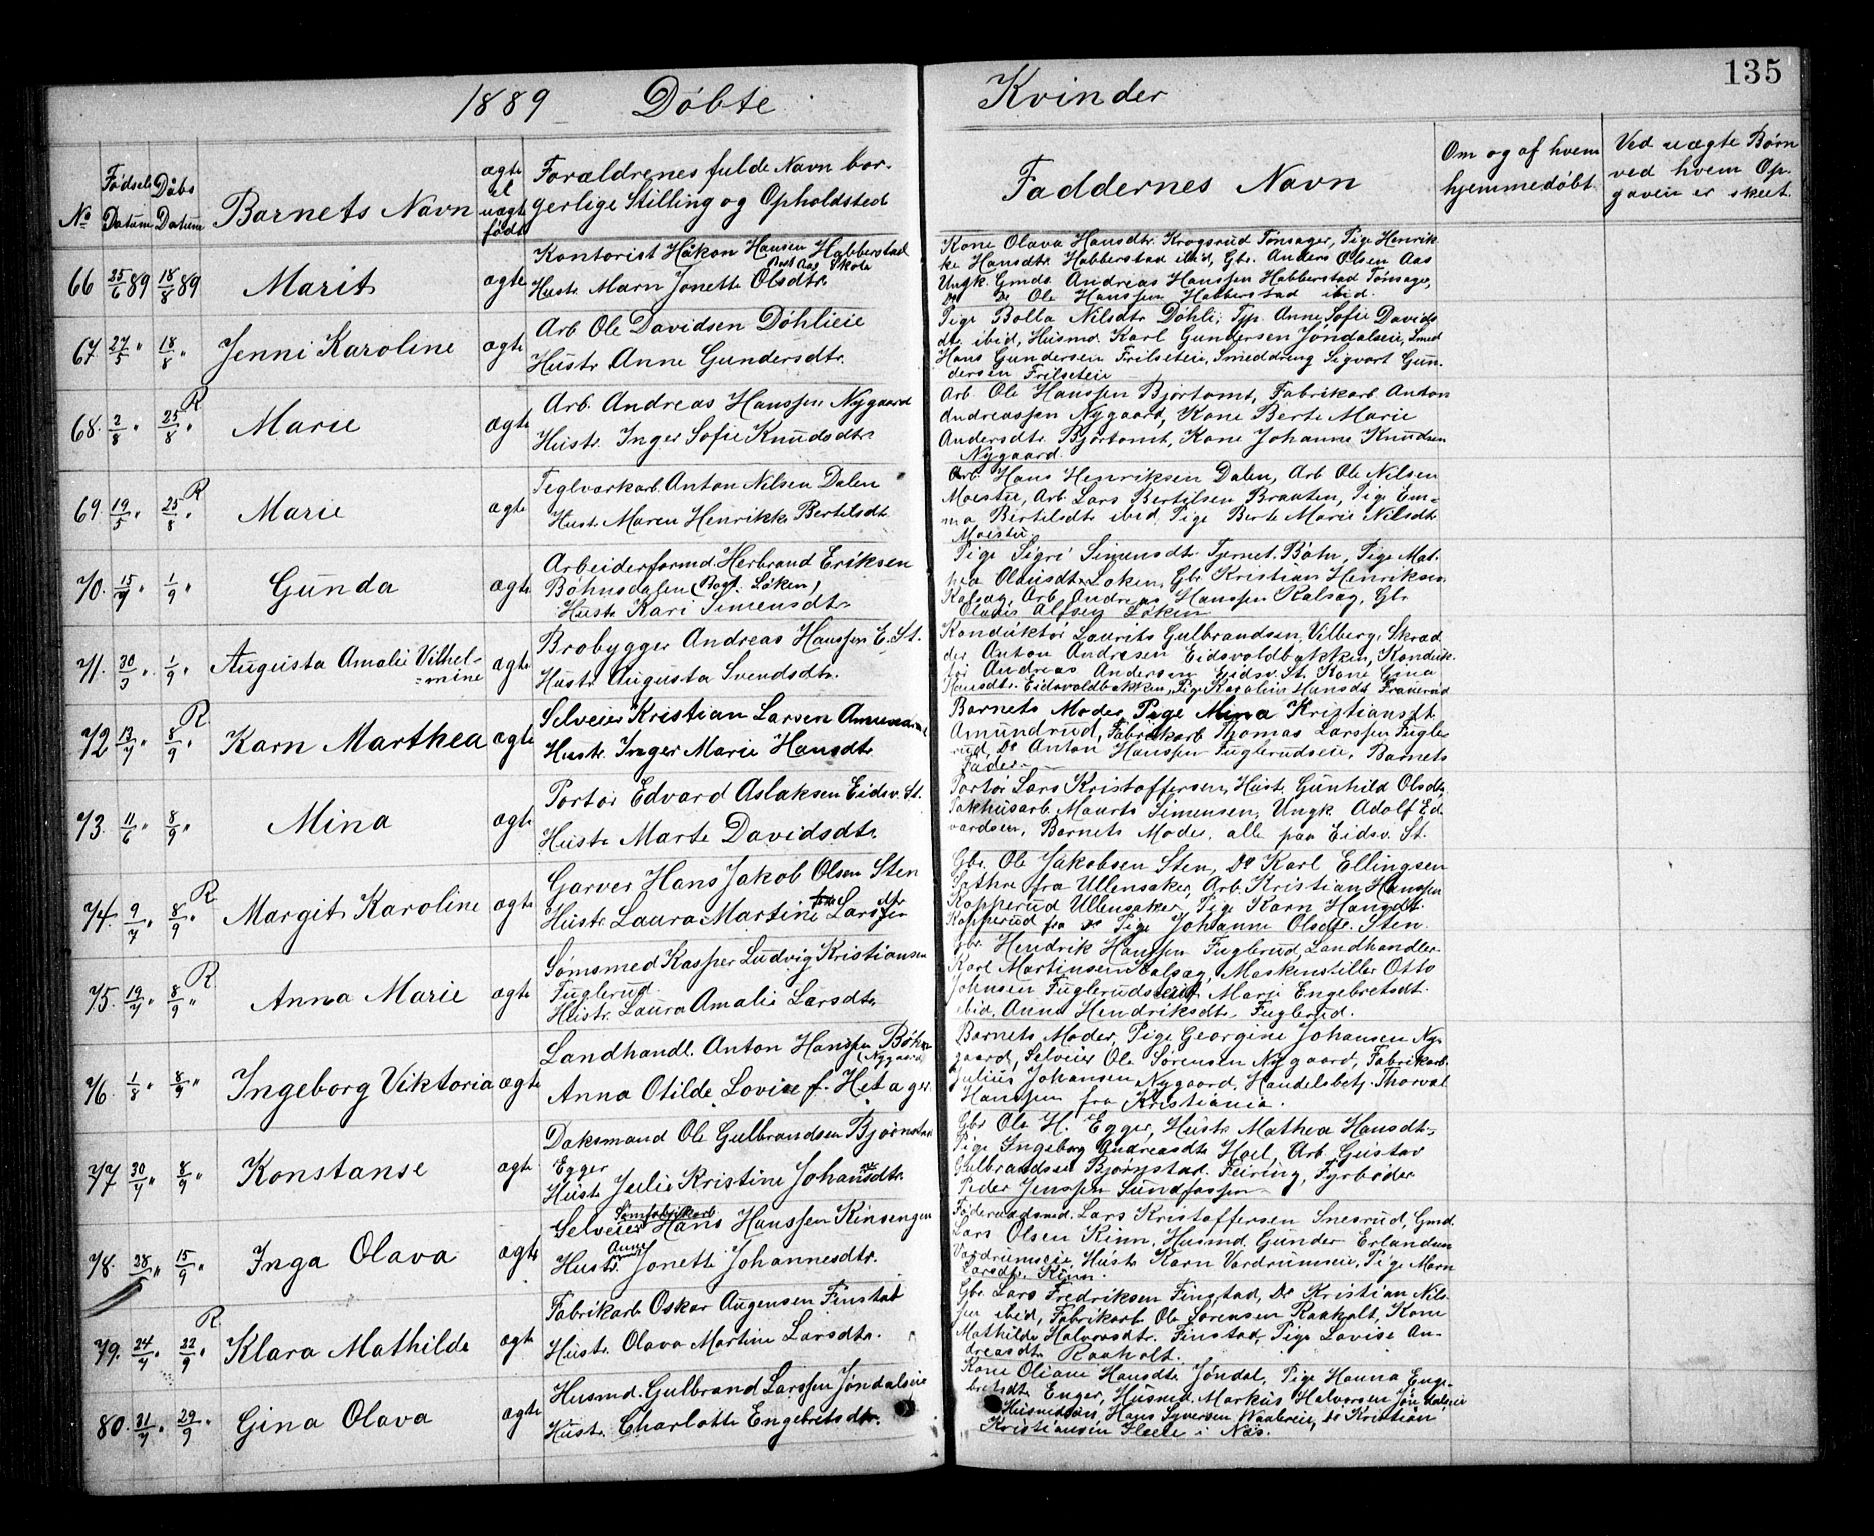 135
1889 Döbte Kvinder
No
Födsels Datum
Daabs Datum
Barnets Navn
ægte el uægte födt
Forældrenes fulde Navn borgerlige Stilling og Opholdsted
Faddernes Navn
Om og af hvem hjemmedöbt
Ved uægte Börn ved hvem Opgaven er skeet.
66 25/6 89 18/8 89 Marit ægte
Kontorist Håkon Hansen Habberstad
Aas Skole
Hustr. Marn Jonette Olsdtr.
Kone Olava Hansdtr. Krogsrud Tönsager, Pige Henrik
ke Hansdtr. Habberstad ibid, Gbr. Anders Olsen Aas
Ungk. Gmds. Andreas Hanssen Habberstad Tönsager,
Do Do Ole Hanssen Habberstad ibid.
67. 27/5 " 18/8 " Jenni Karoline ægte
Arb. Ole Davidsen Döhlieie
Hustr. Anne Gundersdtr.
Pige Bolla Nilsdtr Döhli, Anne Sofie Davids
dtr. ibid, Husmd. Karl Gundersen Jöndalseie, Smed
Hans Gundersen Frilseteie, Smeddreng Sigvart Gun-
dersen Frilseteie
68. 2/8 " 25/8 " R Marie ægte
Arb. Andreas Hanssen Nygaard
Hustr. Inger Sofie Knudsdtr.
Arb. Ole Hanssen Björtomt, Fabrikarb. Anton
Andreassen Nygaard, Kone Berte Marie
Andersdtr. Björtomt, Kone Johanne Knudsen
Nygaard.
69. 19/5 " 25/8 " R Marie ægte
Teglværkarb. Anton Nilsen Dalen
Hustr. Maren Henrikke Bertilsdtr.
Arb. Hans Henriksen Dalen, Arb. Ole Nilsen
Moestu, Arb. Lars Bertilsen Braaten, Pige Em-
ma Bertilsdtr. ibid, Pige Berte Marie Nilsdtr.
Moestu
70. 15/7 " 1/9 " Gunda ægte
Arbeiderformd. Herbrand Eriksen
Böhnsdalen (Bost. Löken)
Hustr. Kari Simensdtr.
Pige Sigri Simensdtr. Tjernet. Bötn, Pige Mat-
hea Olausdtr. Löken, Gbr. Kristian Henriksen
Kalsag, Arb. Andreas Hanssen Kalsag, Gbr.
Olaus Alfsen Löken
71. 30/3 " 1/9 " Augusta Amalie Vilhel-
=mine ægte
Brobygger Andreas Hanssen E. St.
Hustr. Augusta Svendsdtr.
Konduktör Laurits Gulbrandsen, Vilberg, Skræd
der Anton Andresen Eidsvoldbakken, Konduk-
tör Andreas Andersen Eidsv. St. Kone Gina
Hansdtr. Eidsvoldbakken, Pige Karoline Hansdt.
72 13/7 " 8/9 " R Karn Marthea ægte
Selveier Kristian Larsen
Hustr. Inger Marie Hansdtr.
Barnets Moder, Pige Mina Kristiansdt.
Amundrud, Fabrikarb. Thomas Larssen Fugle-
rud, Do Anton Hanssen Fuglerudseie, Barnets
Fader
73. 11/6 " 8/9 " Mina ægte
Portör Edvard Aslaksen Eidsv. St.
Hustr. Marte Davidsdtr.
Portör Lars Kristoffersen, Hustr. Gunhild Olsdtr.
Pakhusarb. Maurts Simensen, Ungk. Adolf Ed-
vardsen, Barnets Moder, alle paa Eidsv. St.
74. 9/7 " 8/9 " R Margit Karoline ægte
Garver Hans Jakob Olsen Sten
Hustr. Laura Martine Larsdtr
Gbr. Ole Jakobsen Sten, Do Karl Ellingsen
Sæthre fra Ullensaker, Arb. Kristian Hanssen
Kopperud Ullensaker, Pige Karn Hansdt.
Kopperud fra do Pige Johanne Olsdtr. Sten
75. 19/7 " 8/9 " R Anna Marie ægte
Sömsmed Kasper Ludvig Kristiansen
Fuglerud.
Hustr. Laura Amalie Larsdtr.
Gbr. Hendrik Hanssen Fuglerud, Landhandler
Karl Martinsen Kalsag, Maskinstiller Otto
Johnsen Fuglerudseie, Marie Engebretsdt.
ibid, Anne Hendriksdtr. Fuglerud.
76. 1/8 " 8/9 " Ingeborg Viktoria ægte
Landhandl. Anton Hanssen Böhn
(Nygaard)
Anna Otilde Lovise f. Hetager
Barnets Moder, Pige Georgine Johansen Ny-
gaard, Selveier Ole Sörensen Nygaard, Fabrikarb.
Julius Johansen Nygaard, Handelsbetj. Thorval
Hanssen fra Kristiania.
77 30/7 " 8/9 " Konstanse ægte
Daksmand Ole Gulbrandsen Björnstad
Egger
Hustr. Julie Kristine Johansdtr.
Gbr Ole H. Egger, Hustr. Mathea Hansdtr.
Pige Ingeborg Andreasdtr. Hoel, Arb. Gustav
Gulbrandsen Björnstad. Feiring, Fyrböder
Peder Jenssen Sundfossen
78. 28/5 " 15/9 " Inga Olava ægte
Sömfabrikarb.
Selveier Hans Hanssen Kinsengen
Anne
Hustr. Jonette Johannesdtr.
Föderaadsmd. Lars Kristoffersen Snesrud, Gmd.
Lars Olsen Kinn, Husmd. Gunder Erlandsen
Vardrumseie, Hustr. Karn Vardrumseie, Pige Marn
Larsdtr. Kinn.
79. 24/7 " 22/9 " R Klara Mathilde ægte
Fabrikarb. Oskar Augensen Finstad
Hustr. Olava Martine Larsdtr.
Gbr. Lars Fredriksen Finstad, Do Kristian Nils-
sen ibid, Fabrikarb. Ole Sörensen Raaholt, Kone
Mathilde Halvorsdtr. Finstad, Pige Lovise An-
dreasdtr. Raaholt.
80. 31/7 " 29/9 " Gina Olava ægte
Husmd. Gulbrand Larssen Jöndalseie
Hustr. Charlotte Engebretsdtr.
Kone Oliane Hansdtr. Jöndal, Pige Hanna Enge-
bretsdtr. Enger, Husmd. Markus Halvorsen Jöndalseie
Husmdsön, Hans Syversen, Do Kristian
Kristiansen i Næs.